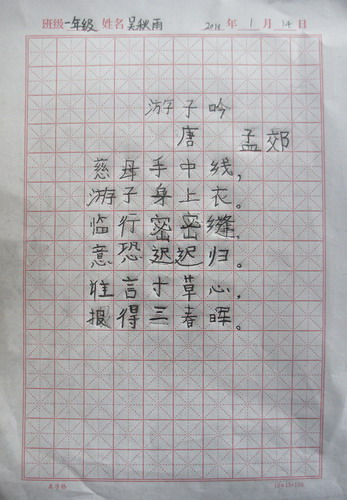 班级一年级 姓名吴秋雨 2016年1月14日
游子吟
唐 孟郊
慈母手中线，
游子身上衣。
临行密密缝，
意恐迟迟归。
谁言寸草心，
报得三春晖。